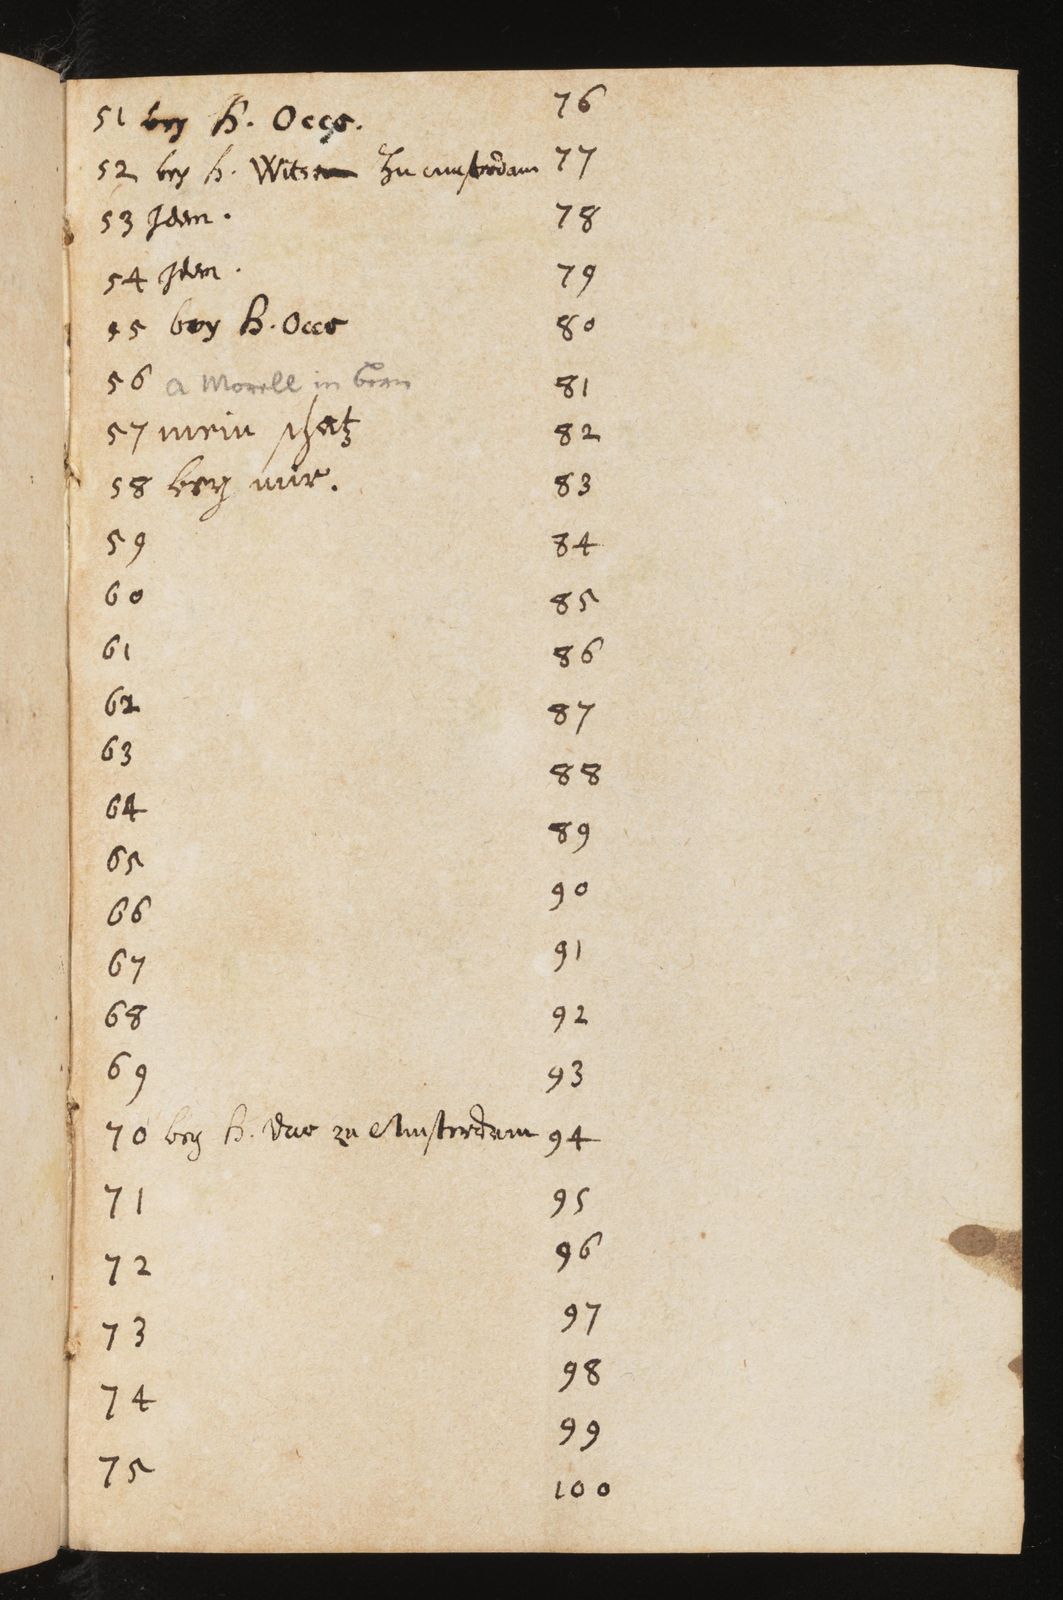 51 bey H. Occo.
52 bey h. Witsen Zu amsterdam
53 Idem.
54 Idem.
55 bey H. Occo
56 a Morell in bern
57 mein schatz
58 bey mir.
59
60
61
62
63
64
65
66
67
68
69
70 bey H. zu Amsterdam
71
72
73
74
75
76
77
78
79
80
81
82
83
84
85
86
87
88
89
90
91
92
93
94
95
96
97
98
99
100